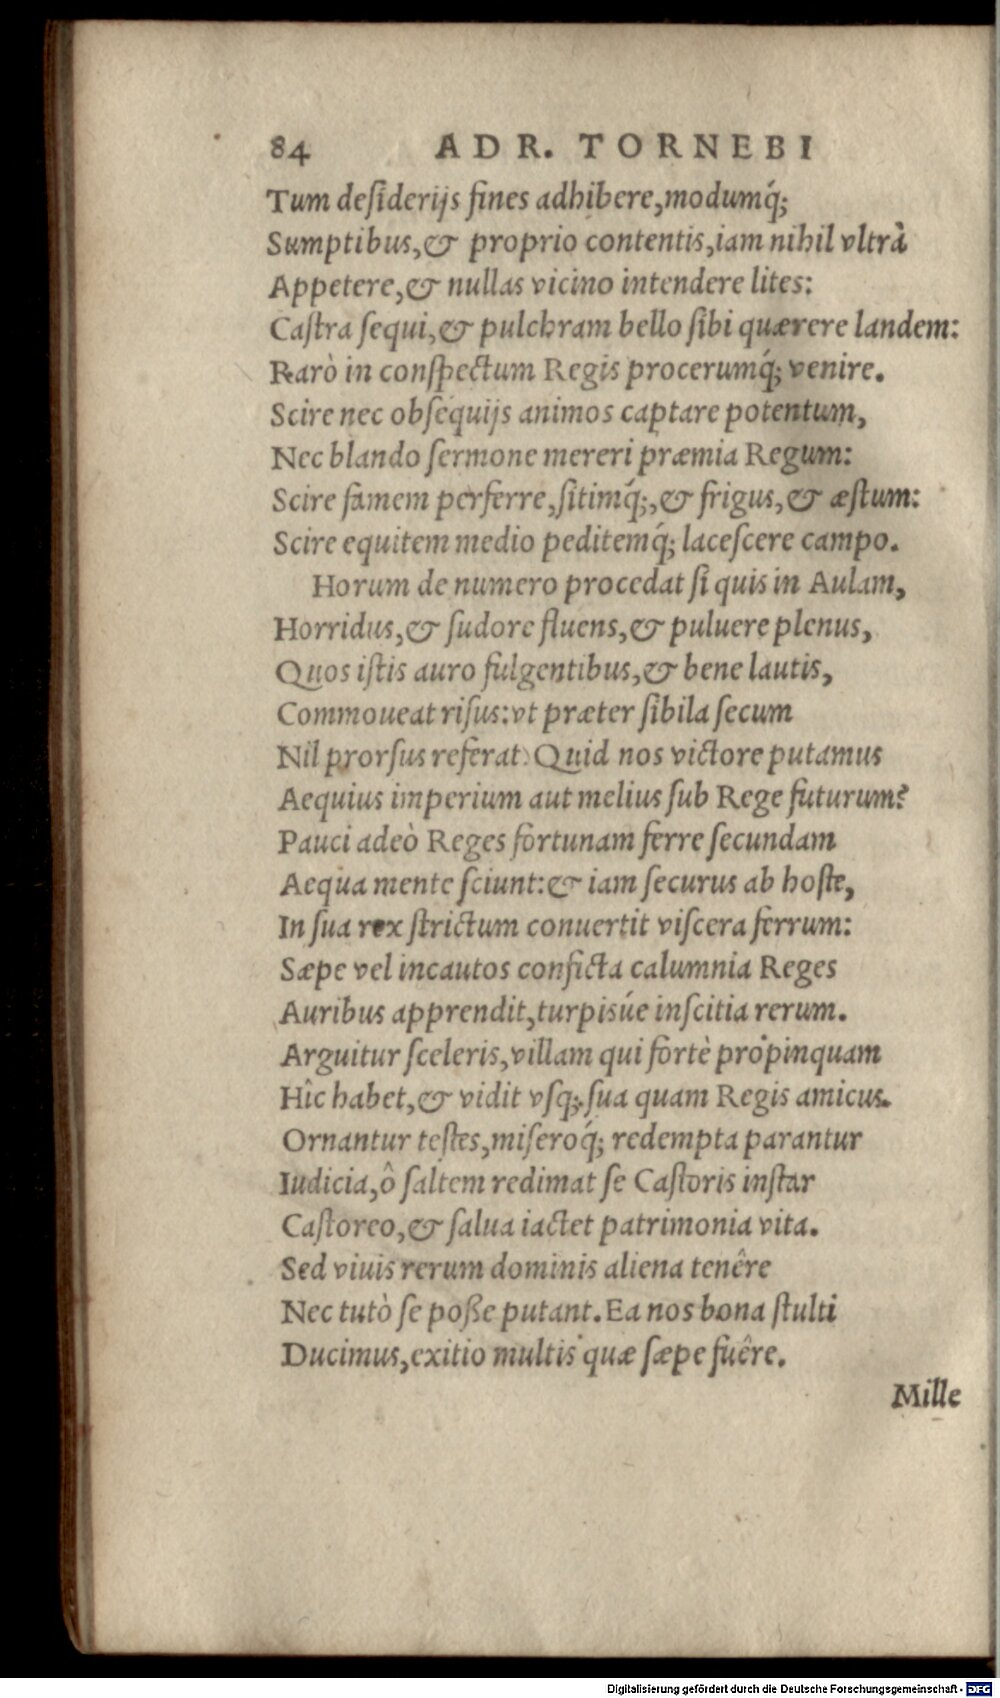 84 ADR. TORNEBI
Tum deſiderijs fines adhibere, modumq́;
Sumptibus, & proprio contentis, iam nihil vltrà
Appetere, & nullas vicino intendere lites:
Caſtra ſequi, & pulchram bello ſibi quærere landem:
Rarò in conſpectum Regis procerumq́; venire.
Scire nec obſequijs animos captare potentum,
Nec blando ſermone mereri præmia Regum:
Scire famem perferre, ſitimq́;, & frigus, & æſtum:
Scire equitem medio peditemq́; laceſcere campo.
Horum de numero procedat ſi quis in Aulam,
Horridus, & ſudore fluens, & puluere plenus,
Quos iſtis auro fulgentibus, & bene lautis,
Commoueat riſus: vt præter ſibila ſecum
Nil prorſus referat. Quid nos victore putamus
Aequius imperium aut melius ſub Rege futurum?
Pauci adeò Reges fortunam ferre ſecundam
Aequa mente ſciunt: & iam ſecurus ab hoſte,
In ſua rex ſtrictum conuertit viſcera ferrum:
Sæpe vel incautos conficta calumnia Reges
Auribus apprendit, turpisúe inſcitia rerum.
Arguitur ſceleris, villam qui fortè propinquam
Hîc habet, & vidit vſq; ſua quam Regis amicus.
Ornantur teſtes, miſeroq́; redempta parantur
Iudicia, ô ſaltem redimat ſe Caſtoris inſtar
Caſtoreo, & ſalua iactet patrimonia vita.
Sed viuis rerum dominis aliena tenêre
Nec tutò ſe poße putant. Ea nos bona ſtulti
Ducimus, exitio multis quæ ſæpe fuêre.
Mille
Digitalisierung gefördert durch die Deutsche Forschungsgemeinschaft - DFG